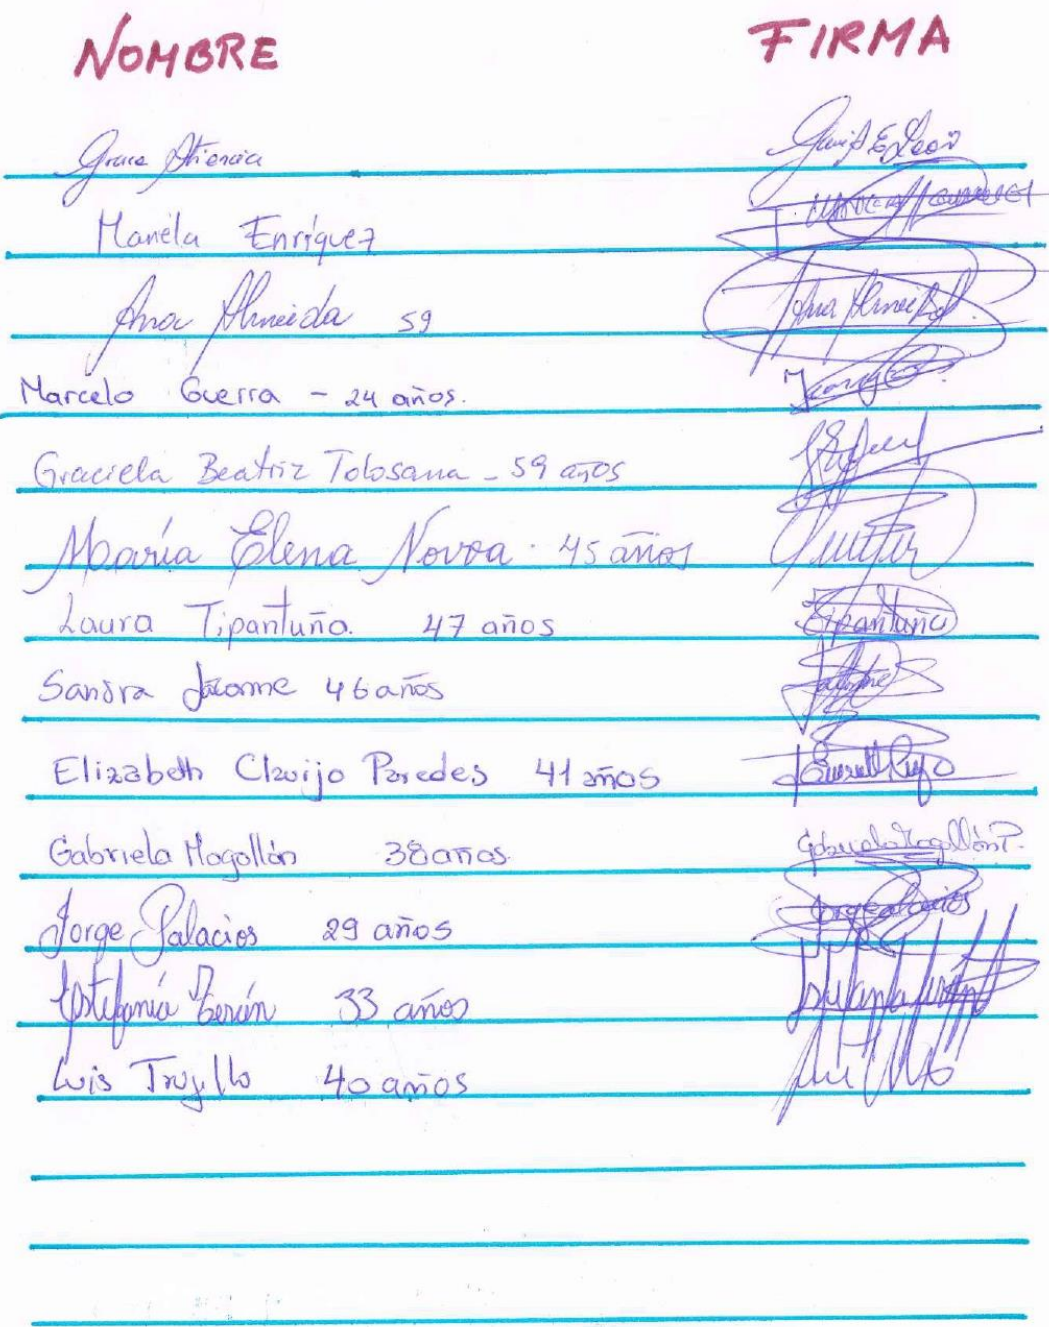 NOMBRE FIRMA
Grace Atiencia
Mariela Enríquez
Ana Almeida 59 Ana Almeida
Marcelo Guerra - 24 años.
Graciela Beatriz Tolosana - 59 años
María Elena Novoa. 45 años
Laura Tipantuña. 47 años Tipantuña
Sandra Jácome 46 años
Elizabeth Clavijo Paredes 41 años
Gabriela Mogollón 38 años. Gabriela Mogollón P.
Jorge Palacios 29 años Jorge Palacios
Estefanía Terán 33 años
Luis Trujillo 40 años